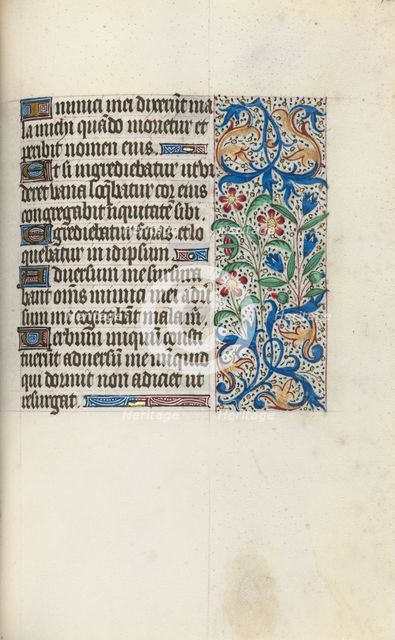 Inimici mei dixerūt ma
la michi quādo morietur et
peribit nomen eius.
Et si ingrediebatur ut vi
deret vana loq̄batur cor eius
congregabit iniquitatē sibi.
Egrediebatur foras et lo
quebatur in idipsum.
Adversum me susurra
bant om̄s inimici mei adv̄
sum me cogitabāt mala m̄.
Verbum iniquum consti
tuerūt adversū me nūquid
qui dormit non adiciet ut
resurgat.
Heritage
Heritage